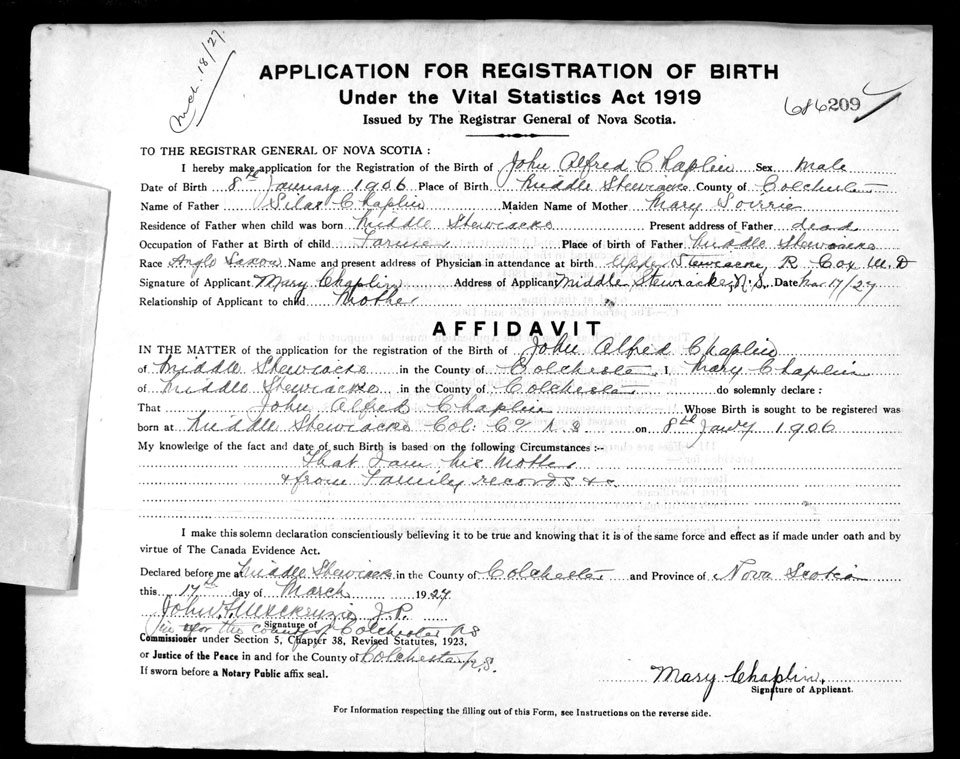 Mch. 18/27.
APPLICATION FOR REGISTRATION OF BIRTH
Under the Vital Statistics Act 1919
686209
Issued by The Registrar General of Nova Scotia.
TO THE REGISTRAR GENERAL OF NOVA SCOTIA :
I hereby make application for the Registration of the Birth of John Alfred Chaplin Sex Male
Date of Birth 8th January 1906 Place of Birth Middle Stewiacke County of Colchester
Name of Father Silas Chaplin Maiden Name of Mother Mary
Residence of Father when child was born Middle Stewiacke Present address of Father dead
Occupation of Father at Birth of child Farmer Place of birth of Father Middle Stewiacke
Race Anglo Saxon Name and present address of Physician in attendance at birth Upper Stewiacke, R. Cox M.D
Signature of Applicant Mary Chaplin Address of Applicant Middle Stewiacke, N.S. Date Mar 17/27
Relationship of Applicant to child Mother
AFFIDAVIT
IN THE MATTER of the application for the registration of the Birth of John Alfred Chaplin
of Middle Stewiacke in the County of Colchester, I Mary Chaplin
of Middle Stewiacke in the County of Colchester do solemnly declare :
That John Alfred Chaplin Whose Birth is sought to be registered was
born at Middle Stewiacke Col. Co N.S on 8th Jany 1906
My knowledge of the fact and date of such Birth is based on the following Circumstances :--
That I am his Mother
& from Family records &c.
I make this solemn declaration conscientiously believing it to be true and knowing that it is of the same force and effect as if made under oath and by
virtue of The Canada Evidence Act.
Declared before me at Middle Stewiacke in the County of Colchester and Province of Nova Scotia
this 17th day of March 1927
John F. McKenzie J.P.
Signature of
in & for the county of Colchester NS
Commissioner under Section 5, Chapter 38, Revised Statutes, 1923,
or Justice of the Peace in and for the County of Colchester N.S.
If sworn before a Notary Public affix seal.
Mary Chaplin.
Signature of Applicant.
For Information respecting the filling out of this Form, see Instructions on the reverse side.